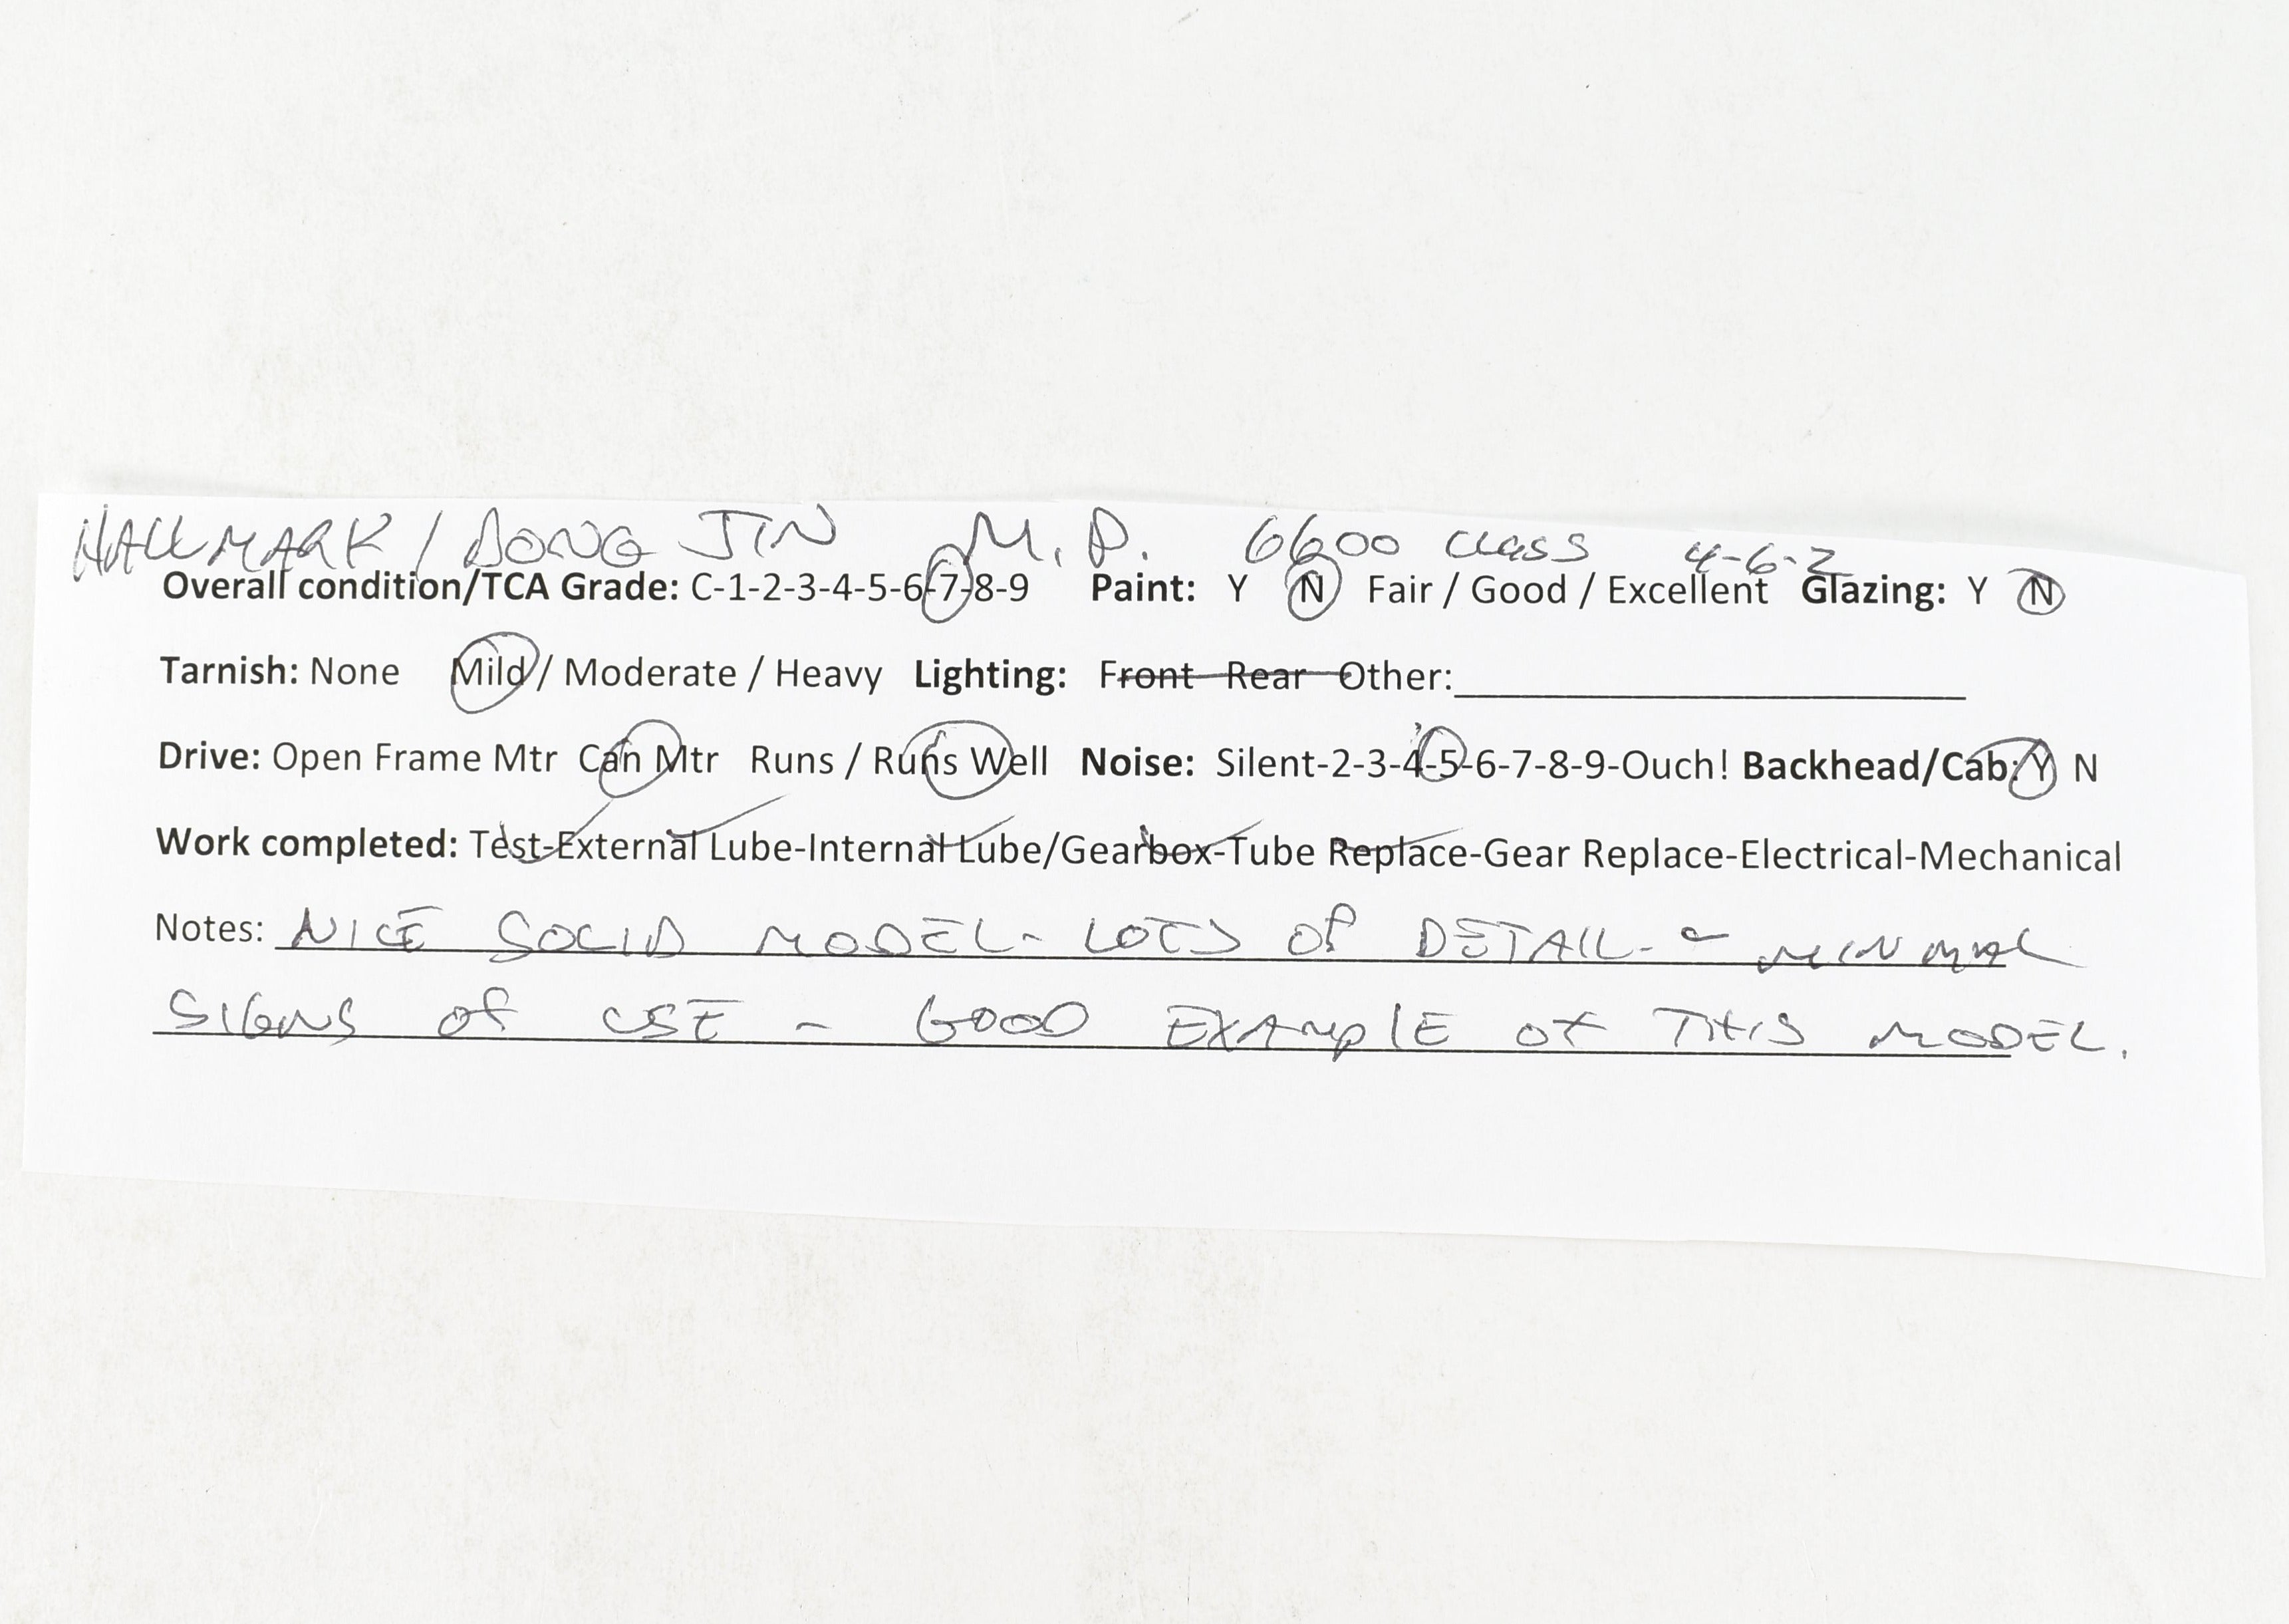 HALLMARK / DONG JIN M.P. 6600 CLASS 4-6-2
Overall condition/TCA Grade: C-1-2-3-4-5-6-7-8-9 Paint: Y N Fair / Good / Excellent Glazing: Y N
Tarnish: None Mild / Moderate / Heavy Lighting: Front Rear Other:
Drive: Open Frame Mtr Can Mtr Runs / Runs Well Noise: Silent-2-3-4-5-6-7-8-9-Ouch! Backhead/Cab: Y N
Work completed: Test-External Lube-Internal Lube/Gearbox-Tube Replace-Gear Replace-Electrical-Mechanical
Notes: NICE SOLID MODEL - LOTS OF DETAIL - MINIMAL
SIGNS OF USE - GOOD EXAMPLE OF THIS MODEL.